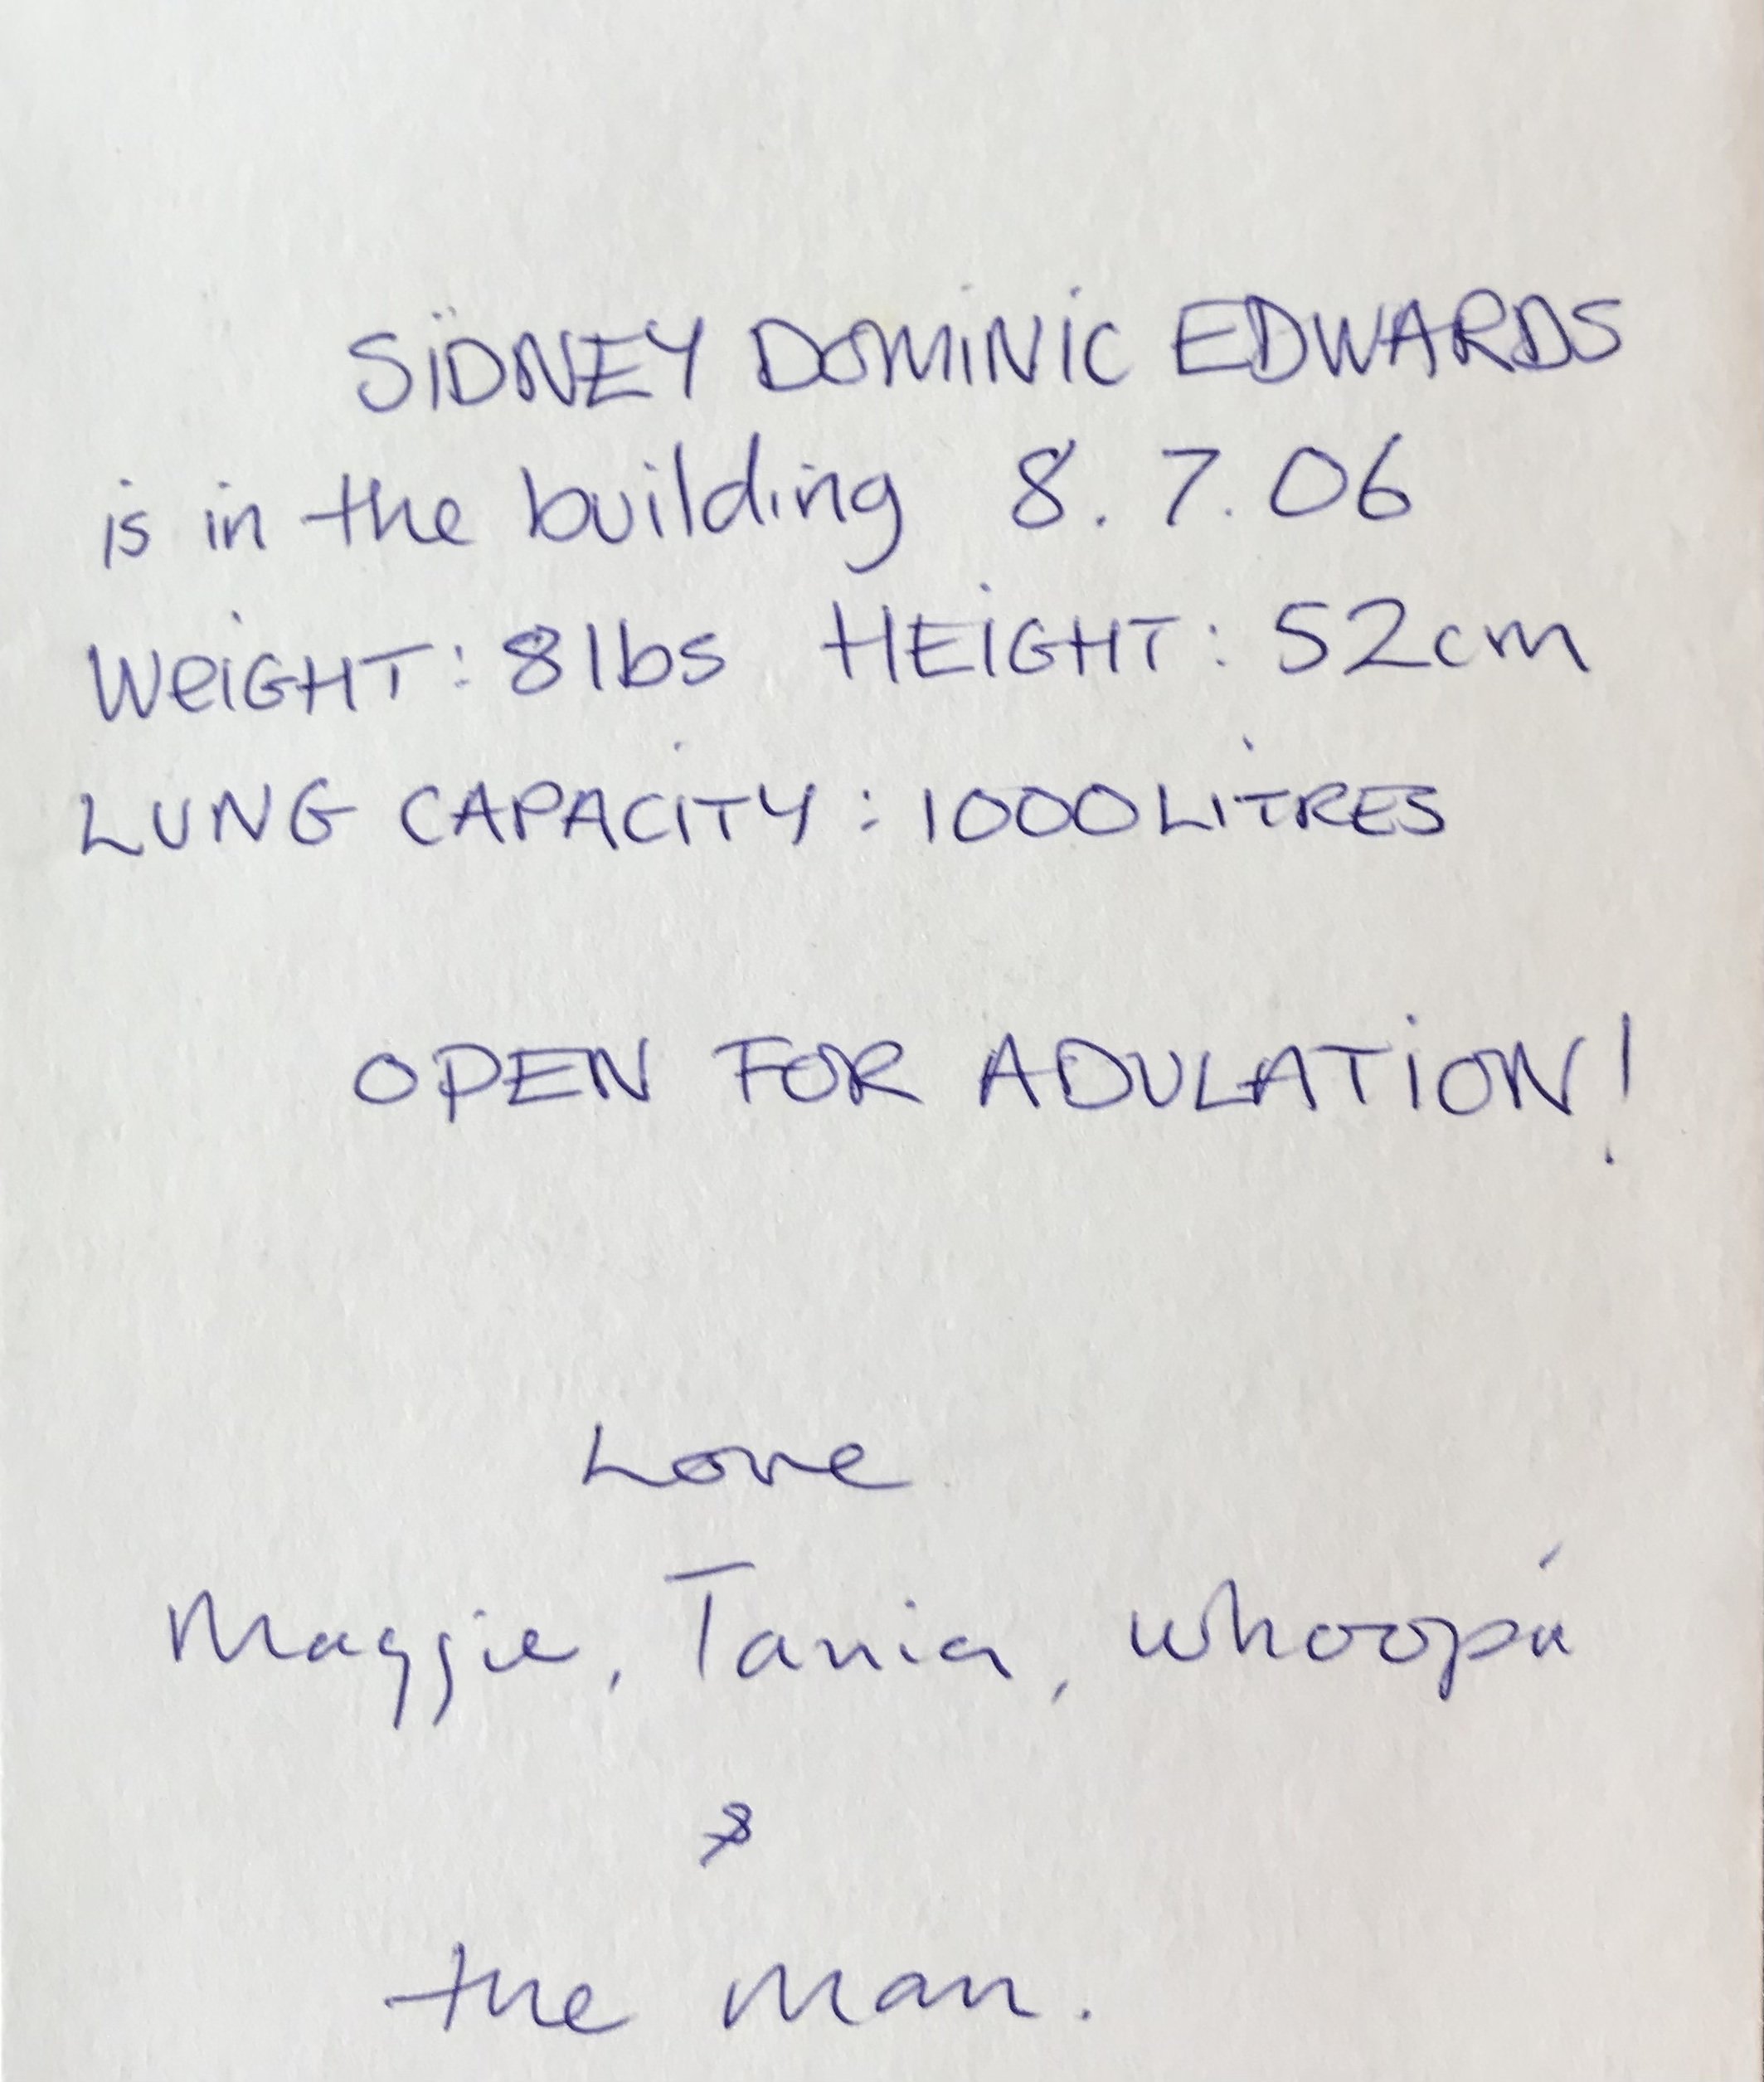 SIDNEY DOMINIC EDWARDS
is in the building 8.7.06
WEIGHT: 8lbs HEIGHT: 52cm
LUNG CAPACITY: 1000 LITRES
OPEN FOR ADULATION!
Love
Maggie, Tania, whoopi
&
the man.